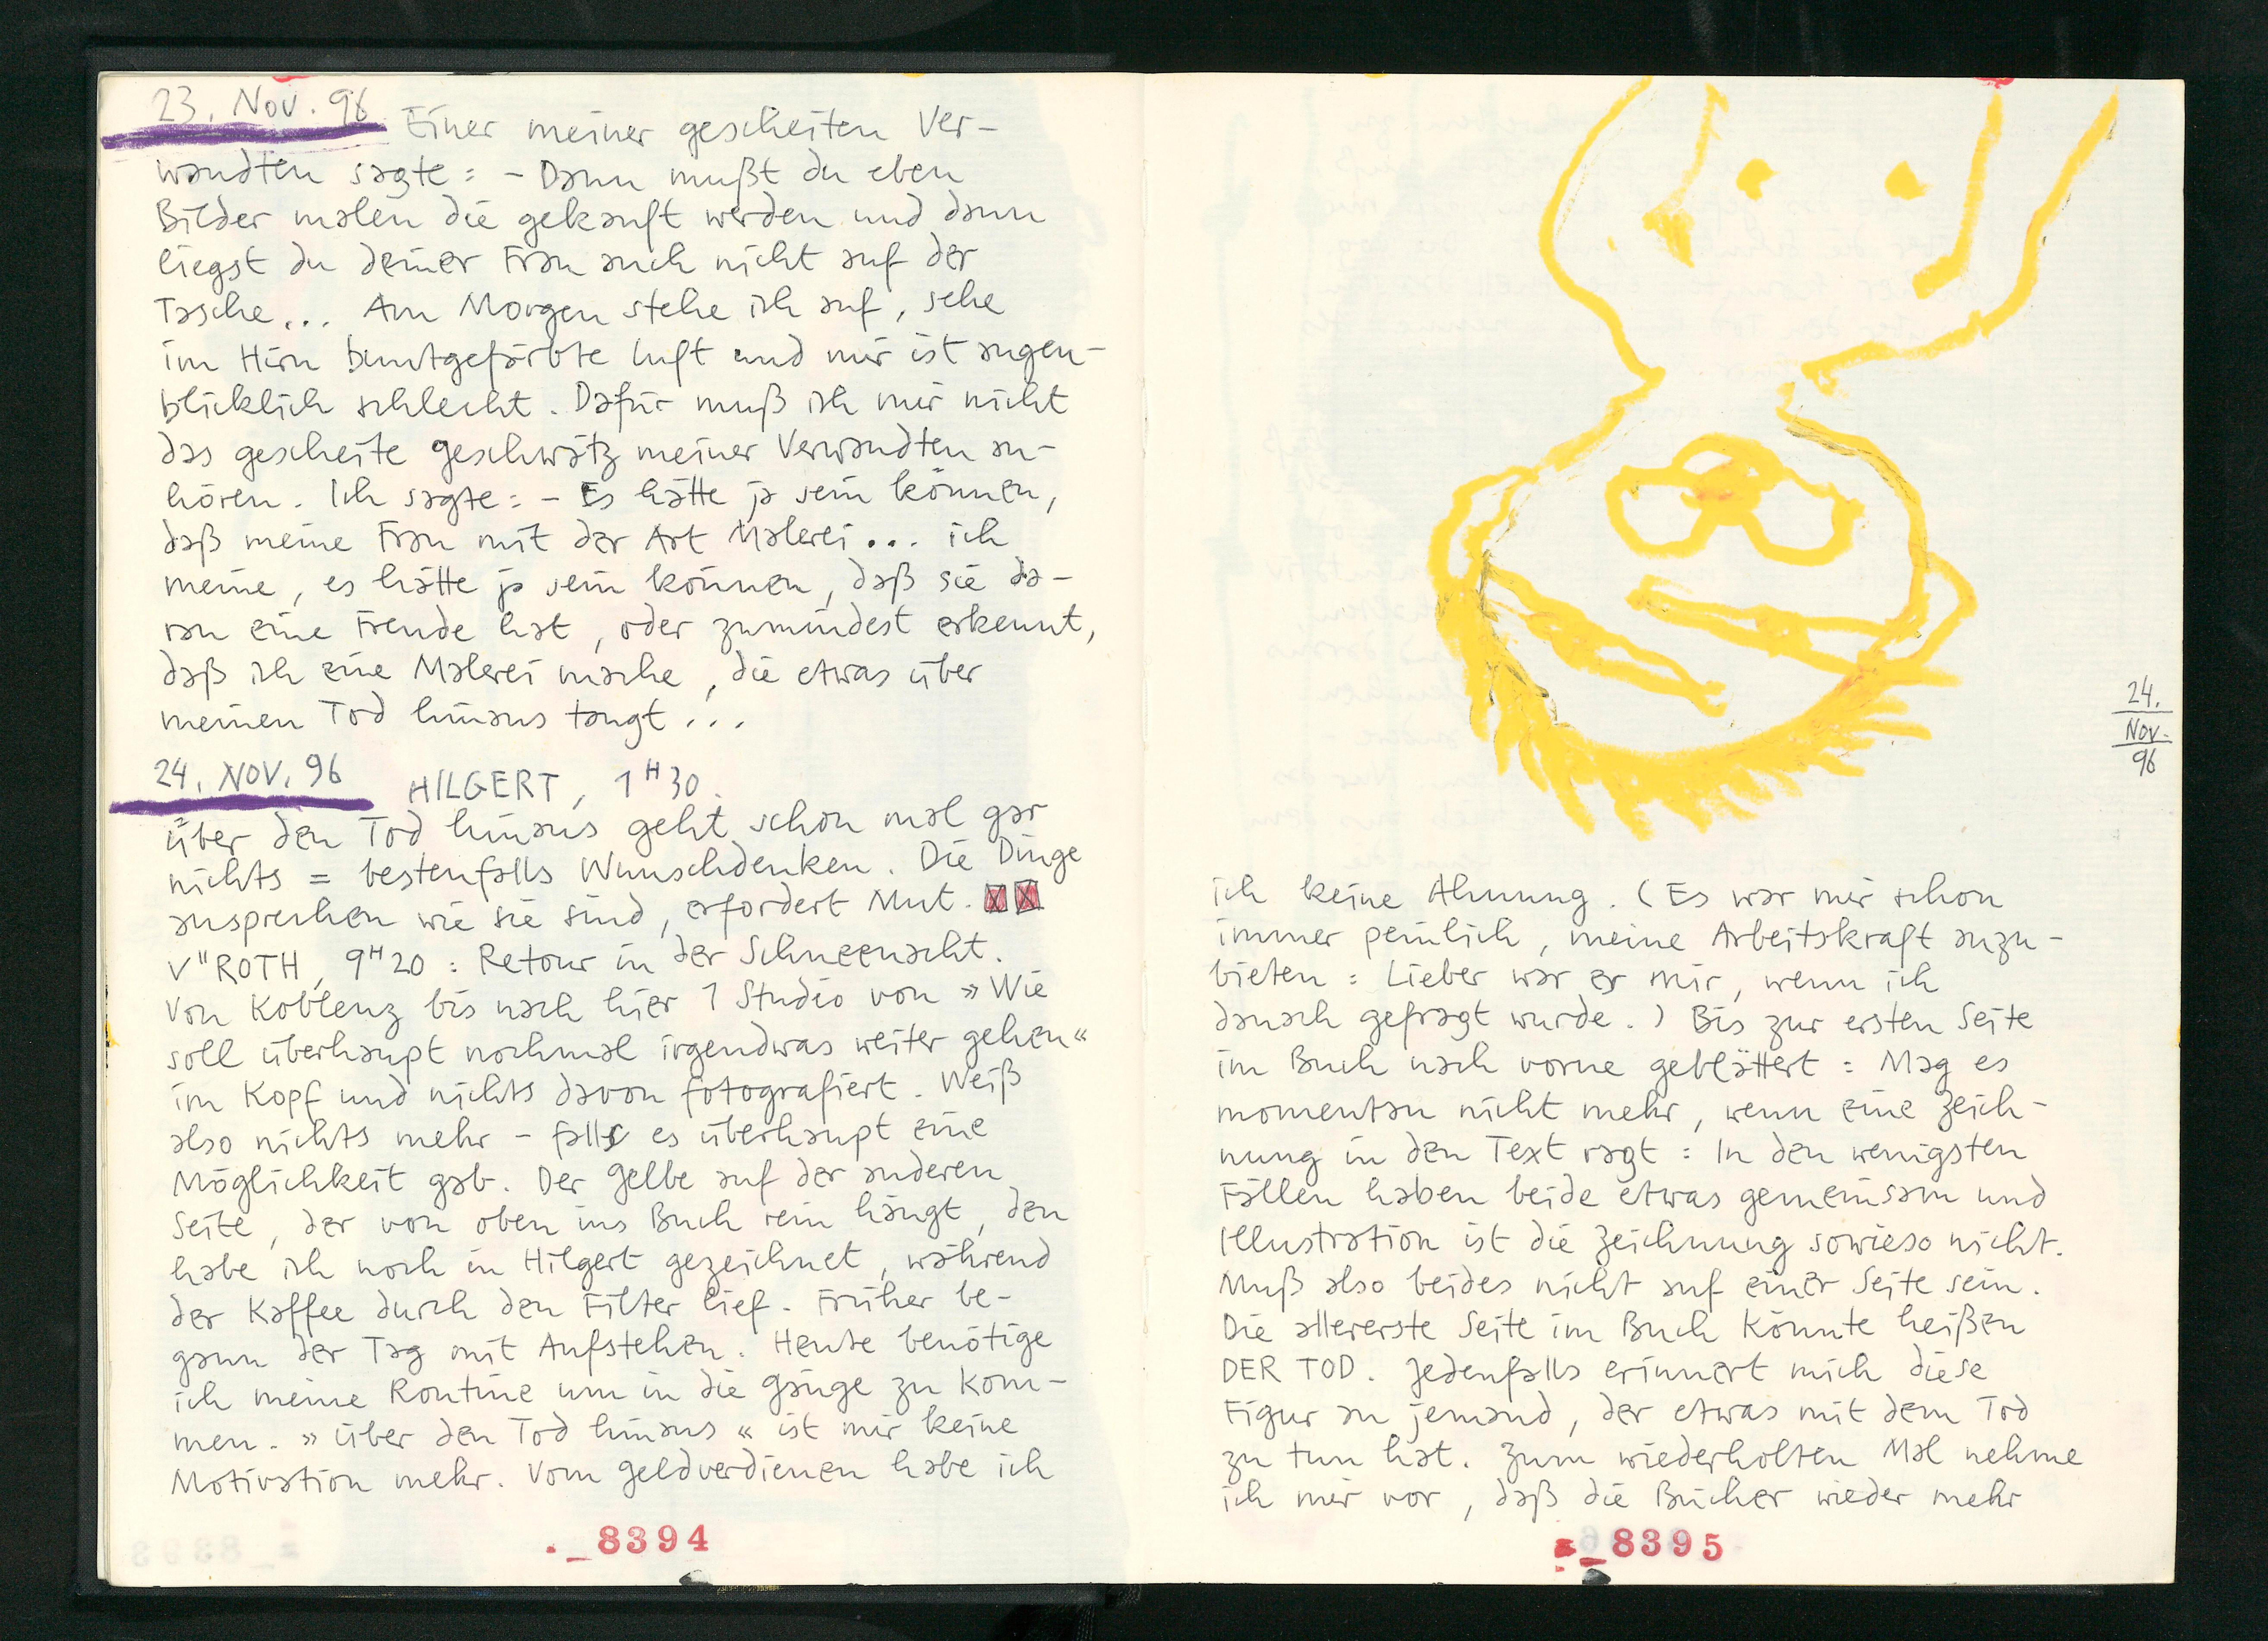 23. Nov. 96 Einer meiner gescheiten Ver-
wandten sagte: - Dann mußt du eben
Bilder malen die gekauft werden und dann
liegst du deiner Frau auch nicht auf der
Tasche... Am Morgen stehe ich auf, sehe
im Hirn buntgefärbte Luft und mir ist augen-
blicklich schlecht. Dafür muß ich mir nicht
das gescheite Geschwätz meiner Verwandten an-
hören. Ich sagte: - Es hätte ja sein können,
daß meine Frau mit der Art Malerei... ich
meine, es hätte ja sein können, daß sie da-
ran eine Freude hat, oder zumindest erkennt,
daß ich eine Malerei mache, die etwas über
meinen Tod hinaus taugt...
24. NOV. 96 HILGERT, 1H30.
Über den Tod hinaus geht schon mal gar
nichts = bestenfalls Wunschdenken. Die Dinge
aussprechen wie sie sind, erfordert Mut.
V"ROTH, 9H20: Retour in der Schneenacht.
Von Koblenz bis nach hier 1 Studio von »Wie
soll überhaupt nochmal irgendwas weiter gehen«
im Kopf und nichts davon fotografiert. Weiß
also nichts mehr - falls es überhaupt eine
Möglichkeit gab. Der Gelbe auf der anderen
Seite, der von oben ins Buch rein hängt, den
habe ich noch in Hilgert gezeichnet, während
der Kaffee durch den Filter lief. Früher be-
gann der Tag mit Aufstehen. Heute benötige
ich meine Routine um in die Gänge zu kom-
men. »Über den Tod hinaus« ist mir keine
Motivation mehr. Vom Geldverdienen habe ich
._8394
24.
Nov.
96
ich keine Ahnung. (Es war mir schon
immer peinlich, meine Arbeitskraft anzu-
bieten: Lieber war es mir, wenn ich
danach gefragt wurde.) Bis zur ersten Seite
im Buch nach vorne geblättert: Mag es
momentan nicht mehr, wenn eine Zeich-
nung in den Text ragt: In den wenigsten
Fällen haben beide etwas gemeinsam und
Illustration ist die Zeichnung sowieso nicht.
Muß also beides nicht auf einer Seite sein.
Die allererste Seite im Buch könnte heißen
DER TOD. Jedenfalls erinnert mich diese
Figur an jemand, der etwas mit dem Tod
zu tun hat. Zum wiederholten Mal nehme
ich mir vor, daß die Bücher wieder mehr
_8395